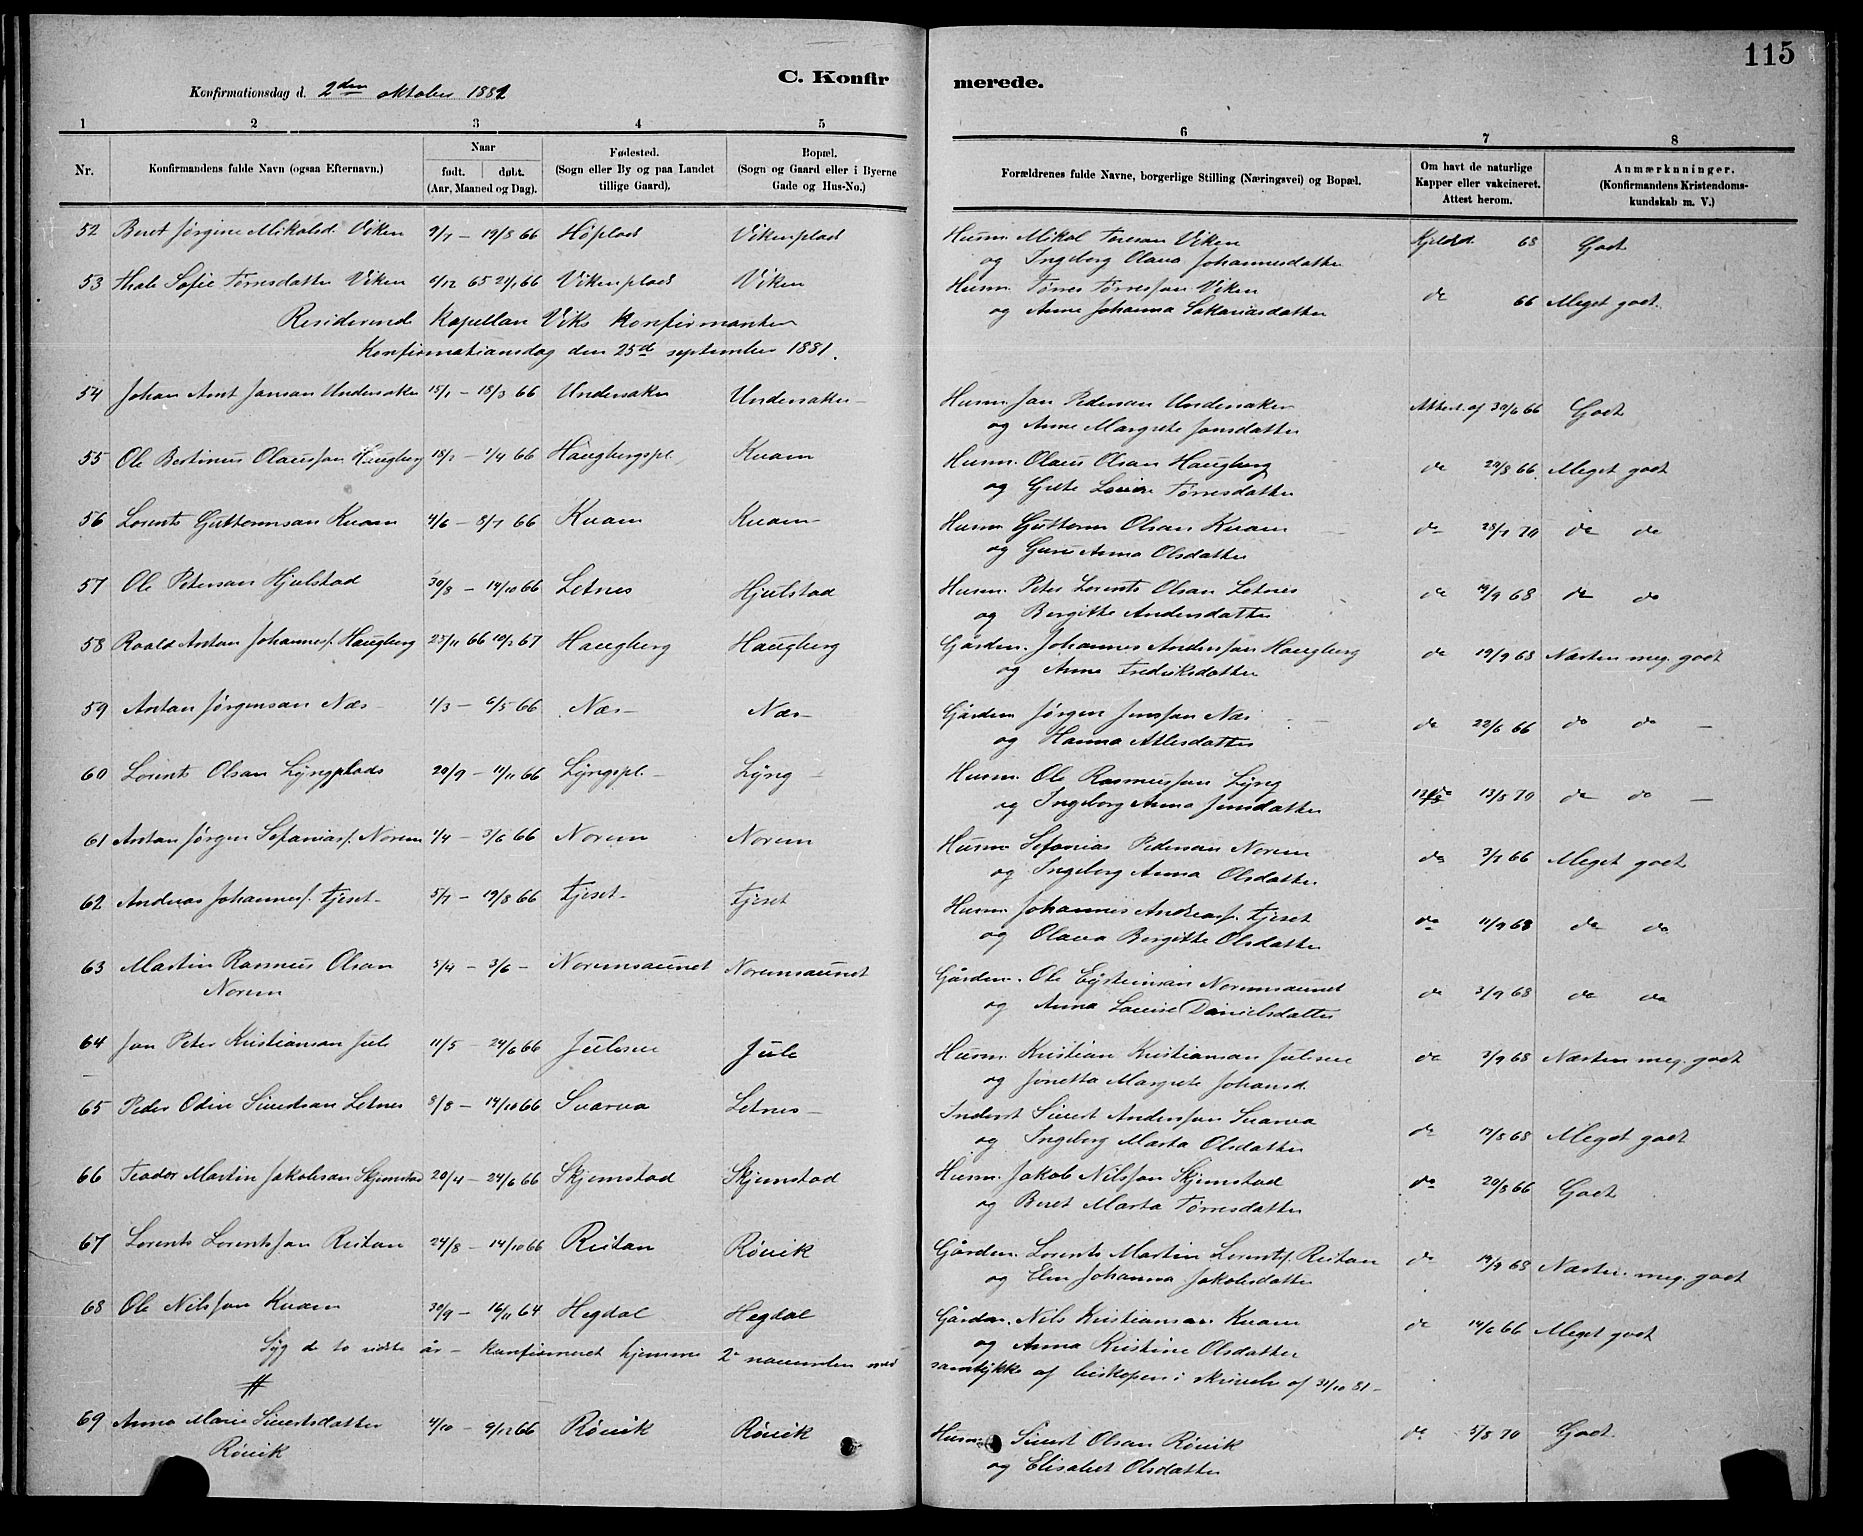 115
C. Konfirmerede.
Konfirmationsdag d. 2den oktober 1881
1 2 3 4 5 6 7 8
Nr. Konfirmandens fulde Navn (ogsaa Efternavn.) Naar født. døbt. (Aar, Maaned og Dag). Fødested. (Sogn eller By og paa Landet tillige Gaard). Bopæl. (Sogn og Gaard eller i Byerne Gade og Hus-No.) Forældrenes fulde Navne, borgerlige Stilling (Næringsvei) og Bopæl. Om havt de naturlige Kapper eller vakcineret. Attest herom. Anmærkninger. (Konfirmandens Kristendomskundskab m. V.)
52 Beret Jørgine Mikalsd. Viken 9/7 – 19/8 66 Høplad Vikenplads Husm. Mikal Toresan Viken 68 Godt
og Ingeborg Olava Johannesdatter
53 Thale Sofie Tørresdatter Viken 6/12 65 21/1 66 Vikenplads Viken Husm. Tørres Tørressøn Viken do 66 Meget godt
og Anne Johanna Sakariasdatter
Residerend Kapellan Viks Konfirmanter
Konfirmationsdag den 25de september 1881.
54 Johan Arnt Jansan Undersaker 15/1 – 18/3 66 Undersaker Undersaker – Husm. Jan Pedersan Undersaker Attest af 30/6 66 Godt
og Anne Margrete Jonsdatter
55 Ole Bertinus Olaussøn Haugberg 18/2 – 1/4 66 Haugbergspl. Kuam Husm. Olaus Olsan Haugberg do 20/8 66 Meget godt
og Gjete Lovise Tørresdatter
56 Lorents Guttormsan Kuam 4/6 – 8/7 66 Kuam Kuam – Husm. Guttorm Olsan Kuam do 28/7 70 do do
og Guru Anna Olsdatter
57 Ole Petersan Hjulstad 30/8 – 14/10 66 Letnes Hjulstad Husm. Peter Lorents Olsan Letnes do 19/9 68 do do
og Bergitte Andersdatter
58 Roald Antan Johannesf. Haugberg 25/11 66 10/2 67 Haugberg Haugberg Gårdm. Johannes Anderssøn Haugberg do 19/9 68 Næsten meg. godt
og Anne Fredriksdatter
59 Antan Jørgensan Næs – 1/3 – 6/5 66 Næs – Næs – Gårdm. Jørgen Jenssøn Næs do 22/6 66 do do –
og Hanna Atlesdatter
60 Lorents Olsan Lyngplads 20/9 – 11/11 66 Lyngspl. – Lyng – Husm. Ole Rasmussøn Lyng do 13/8 70 do do –
og Ingeborg Anna Jensdatter
61 Antan Jørgen Sofaniasf. Norem 1/4 – 3/6 66 Norem Norem Husm. Sofanias Pedersan Norem do 3/7 66 Meget godt
og Ingeborg Anna Olsdatter
62 Andreas Johannesf. Tjeset – 5/7 – 19/8 66 Tjeset – Tjeset Husm. Johannes Andreasf. Tjeset do 11/9 68 do do
og Olava Bergitte Olsdatter
63 Martin Rasmus Olsan 5/4 – 3/6 – Noremsaunet Noremsaunet Gårdm. Ole Eysteinsan Noremsaunet do 3/9 68 do do
Norem og Anna Lovise Danielsdatter
64 Jon Peter Kristiansan Jule 11/5 – 24/6 66 Julesve Jule Husm. Kristian Kristiansan Julesve do 3/9 68 Næsten meg. godt
og Jonetta Margrete Johansd.
65 Peder Odin Sivertsan Letnes 8/8 – 14/10 66 Suarva Letnes – Inderst Sivert Anderssøn Suarva do 12/8 68 Meget godt
og Ingeborg Marta Olsdatter
66 Teodor Martin Jakobsan Skjemstad 20/4 – 24/6 66 Skjemstad Skjemstad Husm. Jakob Nilssøn Skjemstad do 20/8 66 Godt
og Beret Marta Tørresdatter
67 Lorents Lorentssøn Reitan 24/8 – 14/10 66 Reitan Røvik Gårdm. Lorents Martin Lorentsf. Reitan do 19/9 68 Næsten meg. godt
og Elen Johanna Jakobsdatter
68 Ole Nilssøn Kuam 30/9 – 16/11 64 Hegdal Hegdal Gårdm. Nils Kristiansan Kuam do 14/6 66 Meget godt
og Anna Kristine Olsdatter
Syg de to sidste år – Konfirmeret hjemme 2 november med samtykke af biskopen i skrivelse af 31/10 81 –
#
69 Anna Marie Sivertsdatter 4/10 – 9/12 66 Røvik Røvik Husm. Sivert Olsan Røvik do 5/8 70 Godt
Røvik og Elisabet Olsdatter